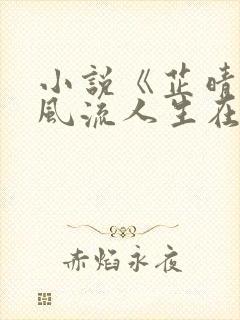 小説《芷晴
風流人生在
赤焰永夜